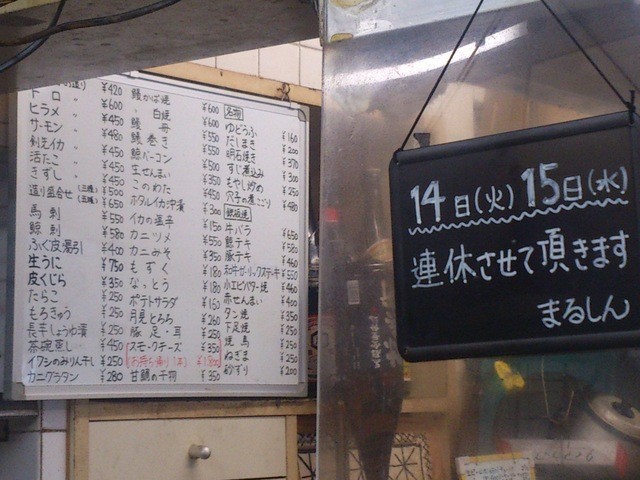 トロ 〃 ¥420
ヒラメ 〃 ¥600
サーモン 〃 ¥450
剣先イカ 〃 ¥480
活たこ 〃 ¥450
きずし 〃 ¥450
造り盛合せ(三種) ¥500
(五種) ¥650
馬刺 ¥550
鯨刺 ¥580
ふぐ皮湯引 ¥400
生うに ¥750
皮くじら ¥350
たらこ ¥250
もろきゅう ¥250
長芋しょうゆ漬 ¥250
茶碗蒸し ¥450
イワシのみりん干し ¥250
カニグラタン ¥280
鰻かば焼 ¥600
〃 白焼 ¥600
鰻
鰻巻き
鯨ベーコン
生せんまい
このわた
ホタルイカ沖漬 ¥300
イカの塩辛 ¥150
カニツメ
カニみそ
もずく ¥180
なっとう ¥180
ポテトサラダ ¥160
月見とろろ ¥260
豚足・耳 ¥250
スモークチーズ ¥350
¥1,800
甘鯛の干物 ¥350
名物
ゆどうふ ¥160
だしまき ¥200
明石焼き ¥370
すじ煮込み ¥300
もやし炒め ¥250
穴子の煮こごり ¥480
鉄板焼
牛バラ ¥650
鯨テキ ¥580
豚テキ ¥450
和牛ガーリックステキ ¥550
小エビバター焼 ¥460
赤せんまい ¥400
タン焼 ¥350
下足焼 ¥250
焼鳥 ¥250
ねぎま ¥250
砂ずり ¥200
14日(火)15日(水)
連休させて頂きます
まるしん